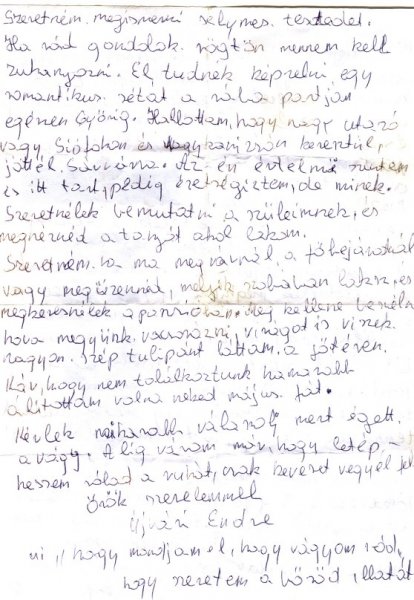 Szeretném megismerni selymes testedet.
Ha rád gondolok rögtön mennem kell
zuhanyozni. El tudnék képzelni egy
romantikus sétát a rába partján
egészen Győrig. Hallottam, hogy nagy utazó
vagy Siófokon és Nagykanizsán keresztül,
jöttél Sárvárra. Az én értelmű szintem
is itt tart, pedig érettségiztem, de minek.
Szeretnélek bemutatni a szüleimnek, és
megnéznéd a tanyát ahol lakom.
Szeretném ha ma megvárnál a főbejáratnál
vagy megüzennéd, melyik szobában laksz, és
megkeresnélek a portásban, meg kellene beszélni
hova megyünk vacsorázni, virágot is viszek
nagyon szép tulipánt láttam a jőtéren.
Kár, hogy nem találkoztunk hamarabb
álítottam volna neked május fát.
Kérlek mihamarabb válaszolj mert éget
a vágy. Alig várom már, hogy letép-
hessem rólad a ruhát, csak keveset vegyél fel
Örök szerelemmel
Újvári Endre
ui " hogy mondjam el, hogy vágyom rád,
hogy szeretem a bőröd illatát